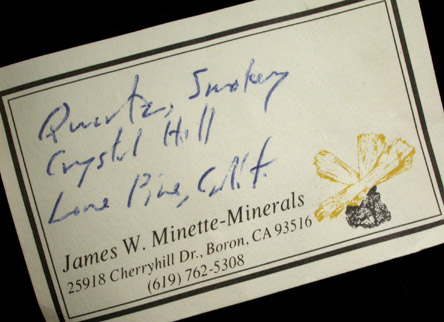 Quartz, Smokey
Crystal Hill
Lone Pine, Calif.
James W. Minette-Minerals
25918 Cherryhill Dr., Boron, CA 93516
(619) 762-5308